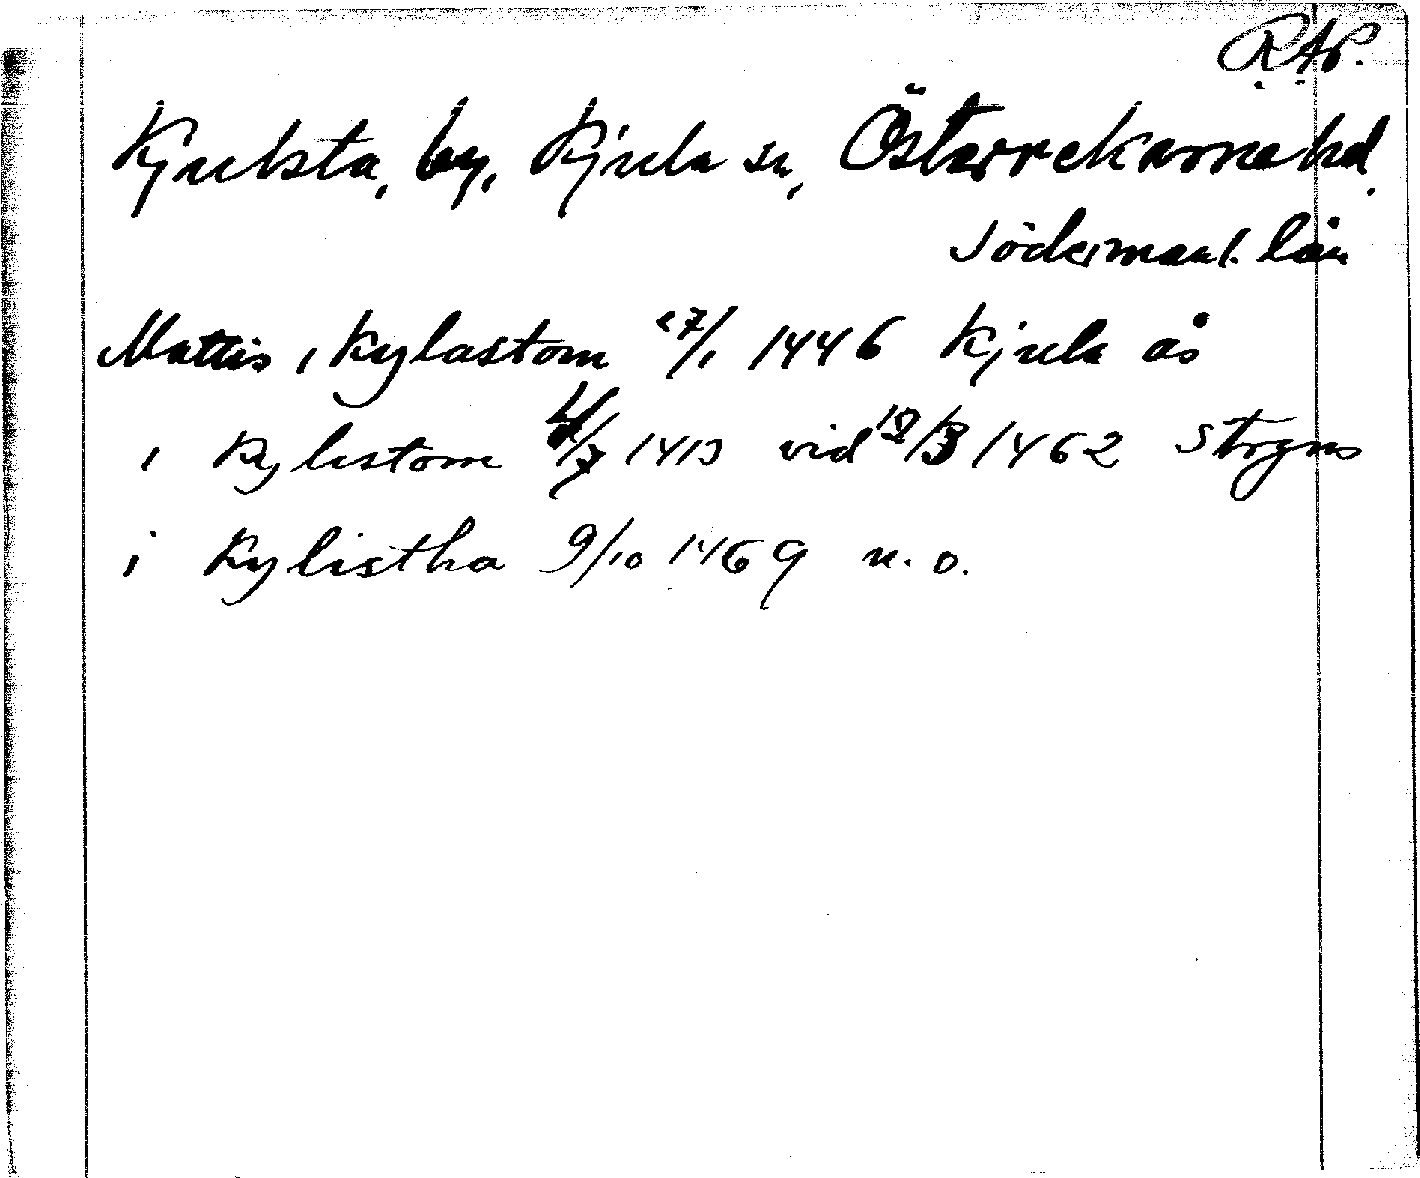 R.A.P.
Kjulsta, by, Kjula sn, Österrekarne hd.
Södermanl. län
Mattis i Kylastom 27/1 1446 Kjula ås
i Kylistom 4/7 1413 vid 12/3 1462 Strgns
i Kylistha 9/10 1469 n. o.